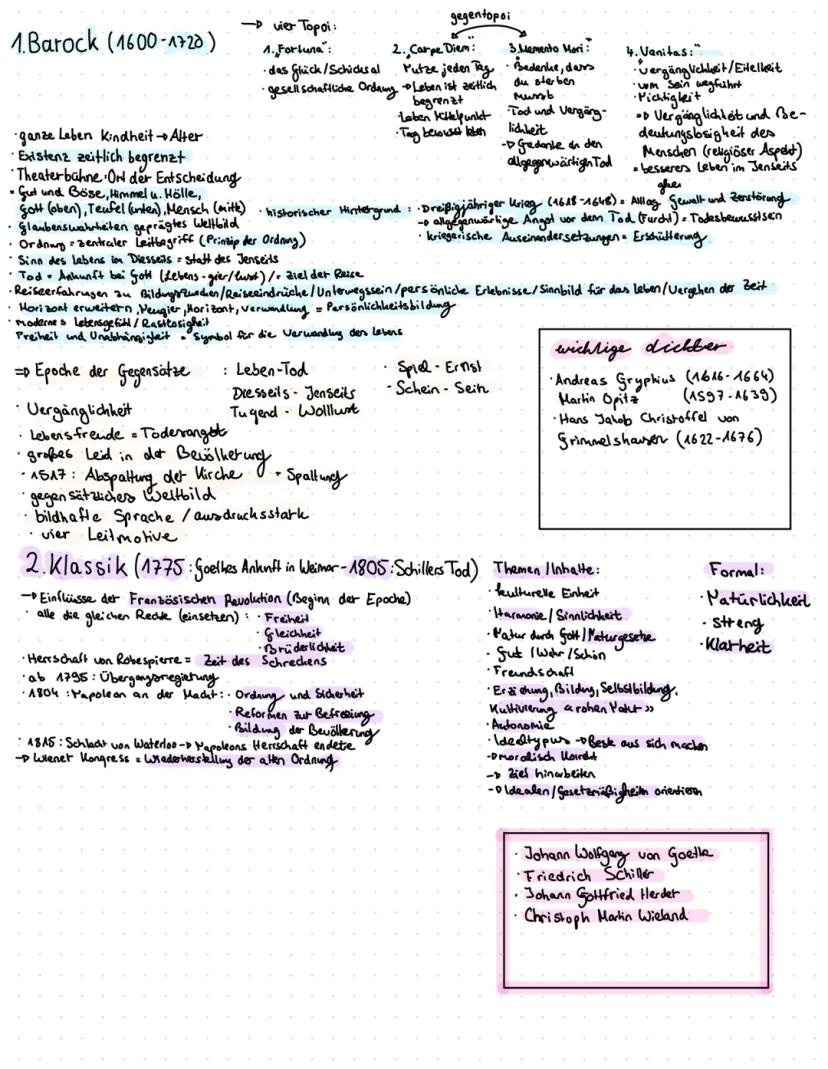 1. Barock (1600-1720)
→ vier Topoi:
gegentopoi
1. „Fortuna":
· das Glück/Schicksal
· gesellschaftliche Ordnung
2. „Carpe Diem:"
Nutze jeden Tag
→ Leben ist zeitlich
begrenzt
Leben Mittelpunkt
· Tag bewusst leben
3. „Memento Mori:"
· Bedenke, dass
du sterben
musst
· Tod und Vergäng-
lichkeit
→ Gedanke an den
allgegenwärtigen Tod
4. „Vanitas:"
· Vergänglichkeit/Eitelkeit
· vom Sein wegführt
· Nichtigkeit
=> Vergänglichkeit und Be-
deutungslosigkeit des
Menschen (religiöser Aspekt)
= besseres Leben im Jenseits
· ganze Leben Kindheit → Alter
· Existenz zeitlich begrenzt
· Theaterbühne: Ort der Entscheidung
= Gut und Böse, Himmel u. Hölle,
Gott (oben), Teufel (unten), Mensch (mitte)
· Glaubenswahrheiten geprägtes Weltbild
· Ordnung = zentraler Leitbegriff (Prinzip der Ordnung)
· Sinn des Lebens im Diesseits = statt des Jenseits
· Tod = Ankunft bei Gott (Lebens-gier/lust) / = Ziel der Reise
· historischer Hintergrund : · Dreißigjähriger Krieg (1618-1648) = Alltag Gewalt und Zerstörung
→ allgegenwärtige Angst vor dem Tod (Furcht) = Todesbewusstsein
· kriegerische Auseinandersetzungen = Erschütterung
· Reiseerfahrungen zu Bildungszwecken/Reiseeindrücke/Unterwegssein/persönliche Erlebnisse/Sinnbild für das Leben/Vergehen der Zeit
· Horizont erweitern, Neugier, Horizont, Verwandlung = Persönlichkeitsbildung
· modernes Lebensgefühl/Rastlosigkeit
Freiheit und Unabhängigkeit = Symbol für die Verwandlung des Lebens
=> Epoche der Gegensätze : Leben-Tod
Diesseits - Jenseits
Tugend - Wolllust
· Spiel - Ernst
- Schein - Sein
· Vergänglichkeit
· Lebensfreude = Todesangst
· großes Leid in der Bevölkerung
· 1517: Abspaltung der Kirche = Spaltung
· gegensätzliches Weltbild
· bildhafte Sprache / ausdrucksstark
· vier Leitmotive
wichtige dichter
· Andreas Gryphius (1616-1664)
Martin Opitz (1597-1639)
· Hans Jakob Christoffel von
Grimmelshausen (1622-1676)
2. Klassik (1775: Goethes Ankunft in Weimar - 1805: Schillers Tod)
→ Einflüsse der Französischen Revolution (Beginn der Epoche)
· alle die gleichen Rechte (einsetzen) : · Freiheit
· Gleichheit
· Brüderlichkeit
· Herrschaft von Robespierre = Zeit des Schreckens
· ab 1795: Übergangsregierung
· 1804 : Napoleon an der Macht: · Ordnung und Sicherheit
· Reformen zur Befreiung
· Bildung der Bevölkerung
· 1815: Schlacht von Waterloo → Napoleons Herrschaft endete
→ Wiener Kongress = Wiederherstellung der alten Ordnung
Themen / Inhalte:
· kulturelle Einheit
· Harmonie / Sinnlichkeit
· Natur durch Gott / Naturgesetze
· Gut / Wahr / Schön
· Freundschaft
· Erziehung, Bildung, Selbstbildung,
Kultivierung « rohen Natur »
· Autonomie
· Idealtypus → Beste aus sich machen
→ moralisch
→ Ziel hinarbeiten
→ Idealen / Gesetzmäßigkeiten orientieren
Formal:
· Natürlichkeit
· streng
· Klarheit
· Johann Wolfgang von Goethe
· Friedrich Schiller
· Johann Gottfried Herder
· Christoph Martin Wieland